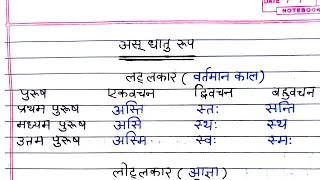 DATE
NOTEBOOK
अस् धातु रूप
लट् लकार ( वर्तमान काल )
पुरूष एकवचन द्विवचन बहुवचन
प्रथम पुरूष अस्ति स्तः सन्ति
मध्यम पुरूष असि स्थः स्थ
उत्तम पुरूष अस्मि स्वः स्मः
लोट् लकार ( आज्ञा )